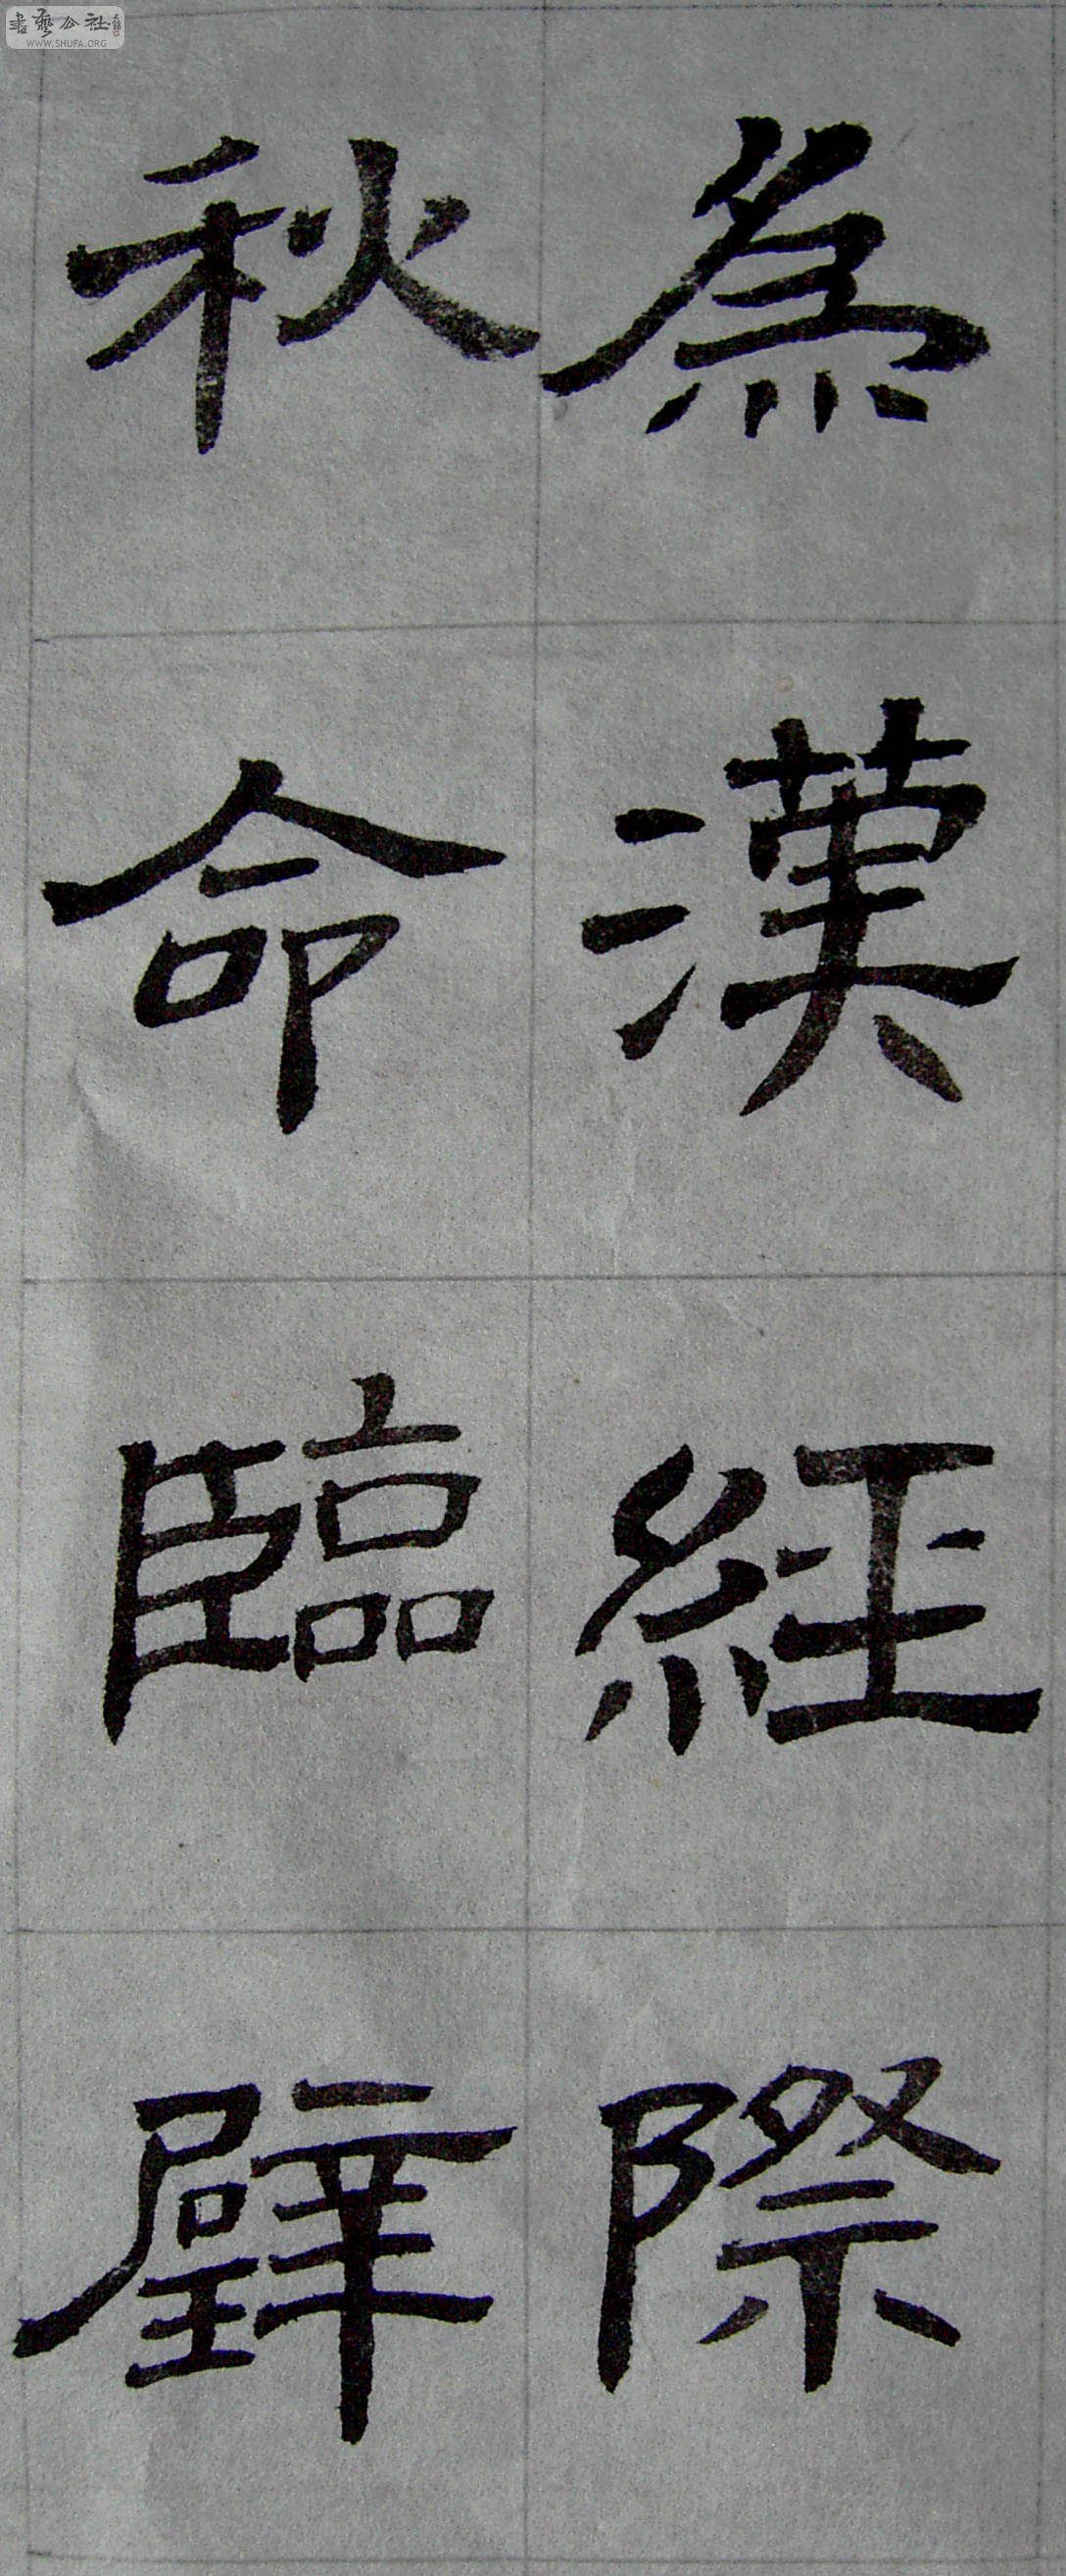 書藝公社
WWW.SHUFA.ORG
為漢經際
秋命臨璧